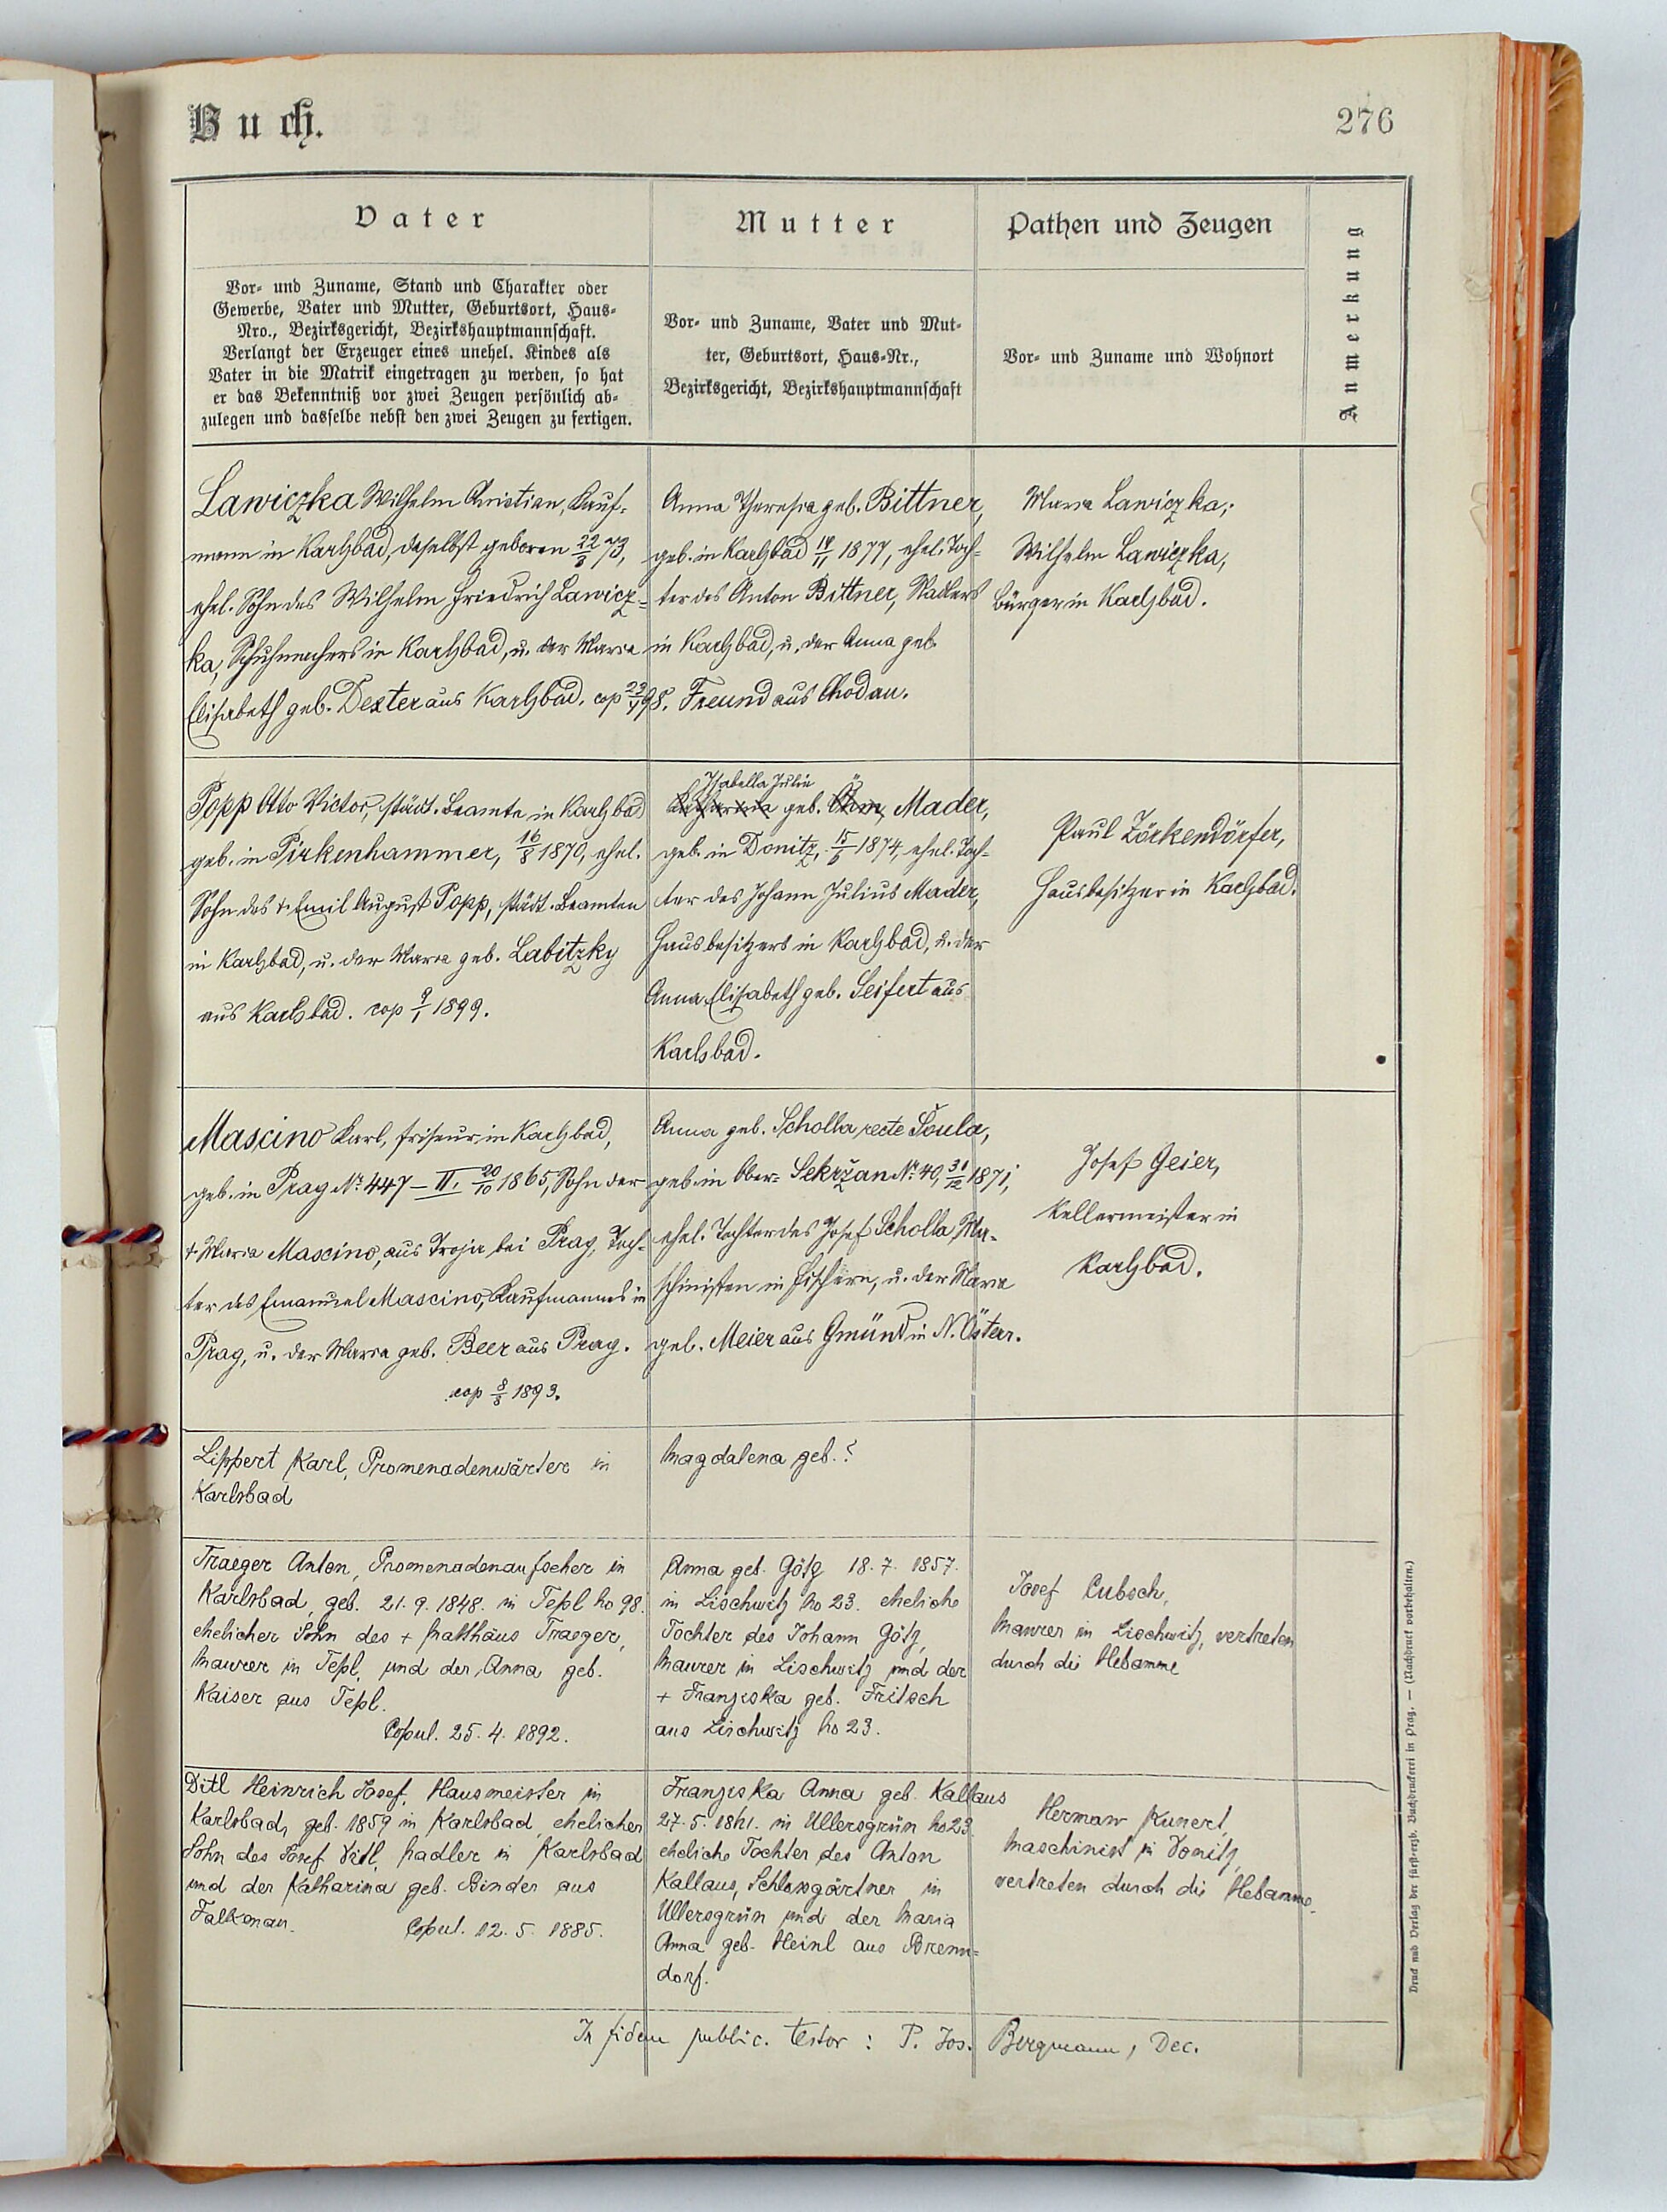 Buch.
276
Vater
Vor- und Zuname, Stand und Charakter oder
Gewerbe, Vater und Mutter, Geburtsort, Haus-
Nro., Bezirksgericht, Bezirkshauptmannschaft.
Verlangt der Erzeuger eines unehel. Kindes als
Vater in die Matrik eingetragen zu werden, so hat
er das Bekenntniß vor zwei Zeugen persönlich ab-
zulegen und dasselbe nebst den zwei Zeugen zu fertigen.
Mutter
Vor- und Zuname, Vater und Mut-
ter, Geburtsort, Haus-Nr.,
Bezirksgericht, Bezirkshauptmannschaft
Pathen und Zeugen
Vor- und Zuname und Wohnort
Anmerkung
Lawiczka Wilhelm Christian, Kauf-
mann in Karlsbad, daselbst geboren 22/8 73,
ehel. Sohn des Wilhelm Friedrich Lawicz-
ka, Schuhmachers in Karlsbad, u. der Maria
Elisabeth geb. Dexter aus Karlsbad. cop 98.
Anna Theresia geb. Bittner,
geb. in Karlsbad 14/11 1877, ehel. Toch-
ter des Anton Bittner, Nadlers
in Karlsbad, u. der Anna geb.
Freund aus Chodau.
Maria Lawiczka;
Wilhelm Lawiczka,
Bürger in Karlsbad.
Popp Otto Victor, städt. Beamte in Karlsbad
geb. in Pirkenhammer, 16/8 1870, ehel.
Sohn des + Emil August Popp, städt. Beamten
in Karlsbad, u. der Maria geb. Labitzky
aus Karlsbad. cop 9/1 1899.
Isabella Julie
geb. Mader,
geb. in Donitz, 15/5 1874, ehel. Toch-
ter des Johann Julius Mader,
Hausbesitzers in Karlsbad, u. der
Anna Elisabeth geb. Seifert aus
Karlsbad.
Paul Zörkendörfer,
Hausbesitzer in Karlsbad.
Mascino Karl, Friseur in Karlsbad,
geb. in Prag No. 447 - II. 20/10 1865, Sohn der
+ Maria Mascino, aus Troja bei Prag, Toch-
ter des Emanuel Mascino, Kaufmannes in
Prag, u. der Maria geb. Beer aus Prag.
cop 8/8 1893.
Anna geb. Scholla recte Šoula,
geb. in Ober- Sekržan No. 40, 31/12 1871,
ehel. Tochter des Josef Scholla, Ma-
schinisten in Fischern, u. der Maria
geb. Meier aus Gmünd in N. Österr.
Josef Geier,
Kellermeister in
Karlsbad.
Lippert Karl, Promenadenwärter in
Karlsbad
Magdalena geb. ?
Traeger Anton, Promenadenaufseher in
Karlsbad, geb. 21. 9. 1848. in Tepl No 98.
ehelicher Sohn des + Matthäus Traeger,
Maurer in Tepl, und der Anna geb.
Kaiser aus Tepl.
Copul. 25. 4. 1892.
Anna geb. Götz 18. 7. 1857.
in Lischwitz No 23. eheliche
Tochter des Johann Götz,
Maurer in Lischwitz und der
+ Franziska geb. Fritsch
aus Lischwitz No 23.
Josef Cubsch,
Maurer in Lischwitz, vertreten
durch die Hebamme
Ditl Heinrich Josef, Hausmeister in
Karlsbad, geb. 1859 in Karlsbad, ehelicher
Sohn des Josef Ditl, Nadler in Karlsbad
und der Katharina geb. Binder aus
Falkenau. Copul. 12. 5. 1885.
Franziska Anna geb. Kallaus
27. 5. 1861. in Ullersgrün No 23.
eheliche Tochter des Anton
Kallaus, Schlossgärtner in
Ullersgrün und der Maria
Anna geb. Heinl aus Brenn-
dorf.
Hermann Kunert,
Maschinist in Donitz,
vertreten durch die Hebamme.
In fidem public. testor : P. Jos. Bergmann, Dec.
Druck und Verlag der fürst-erzb. Buchdruckerei in Prag. — (Nachdruck vorbehalten.)